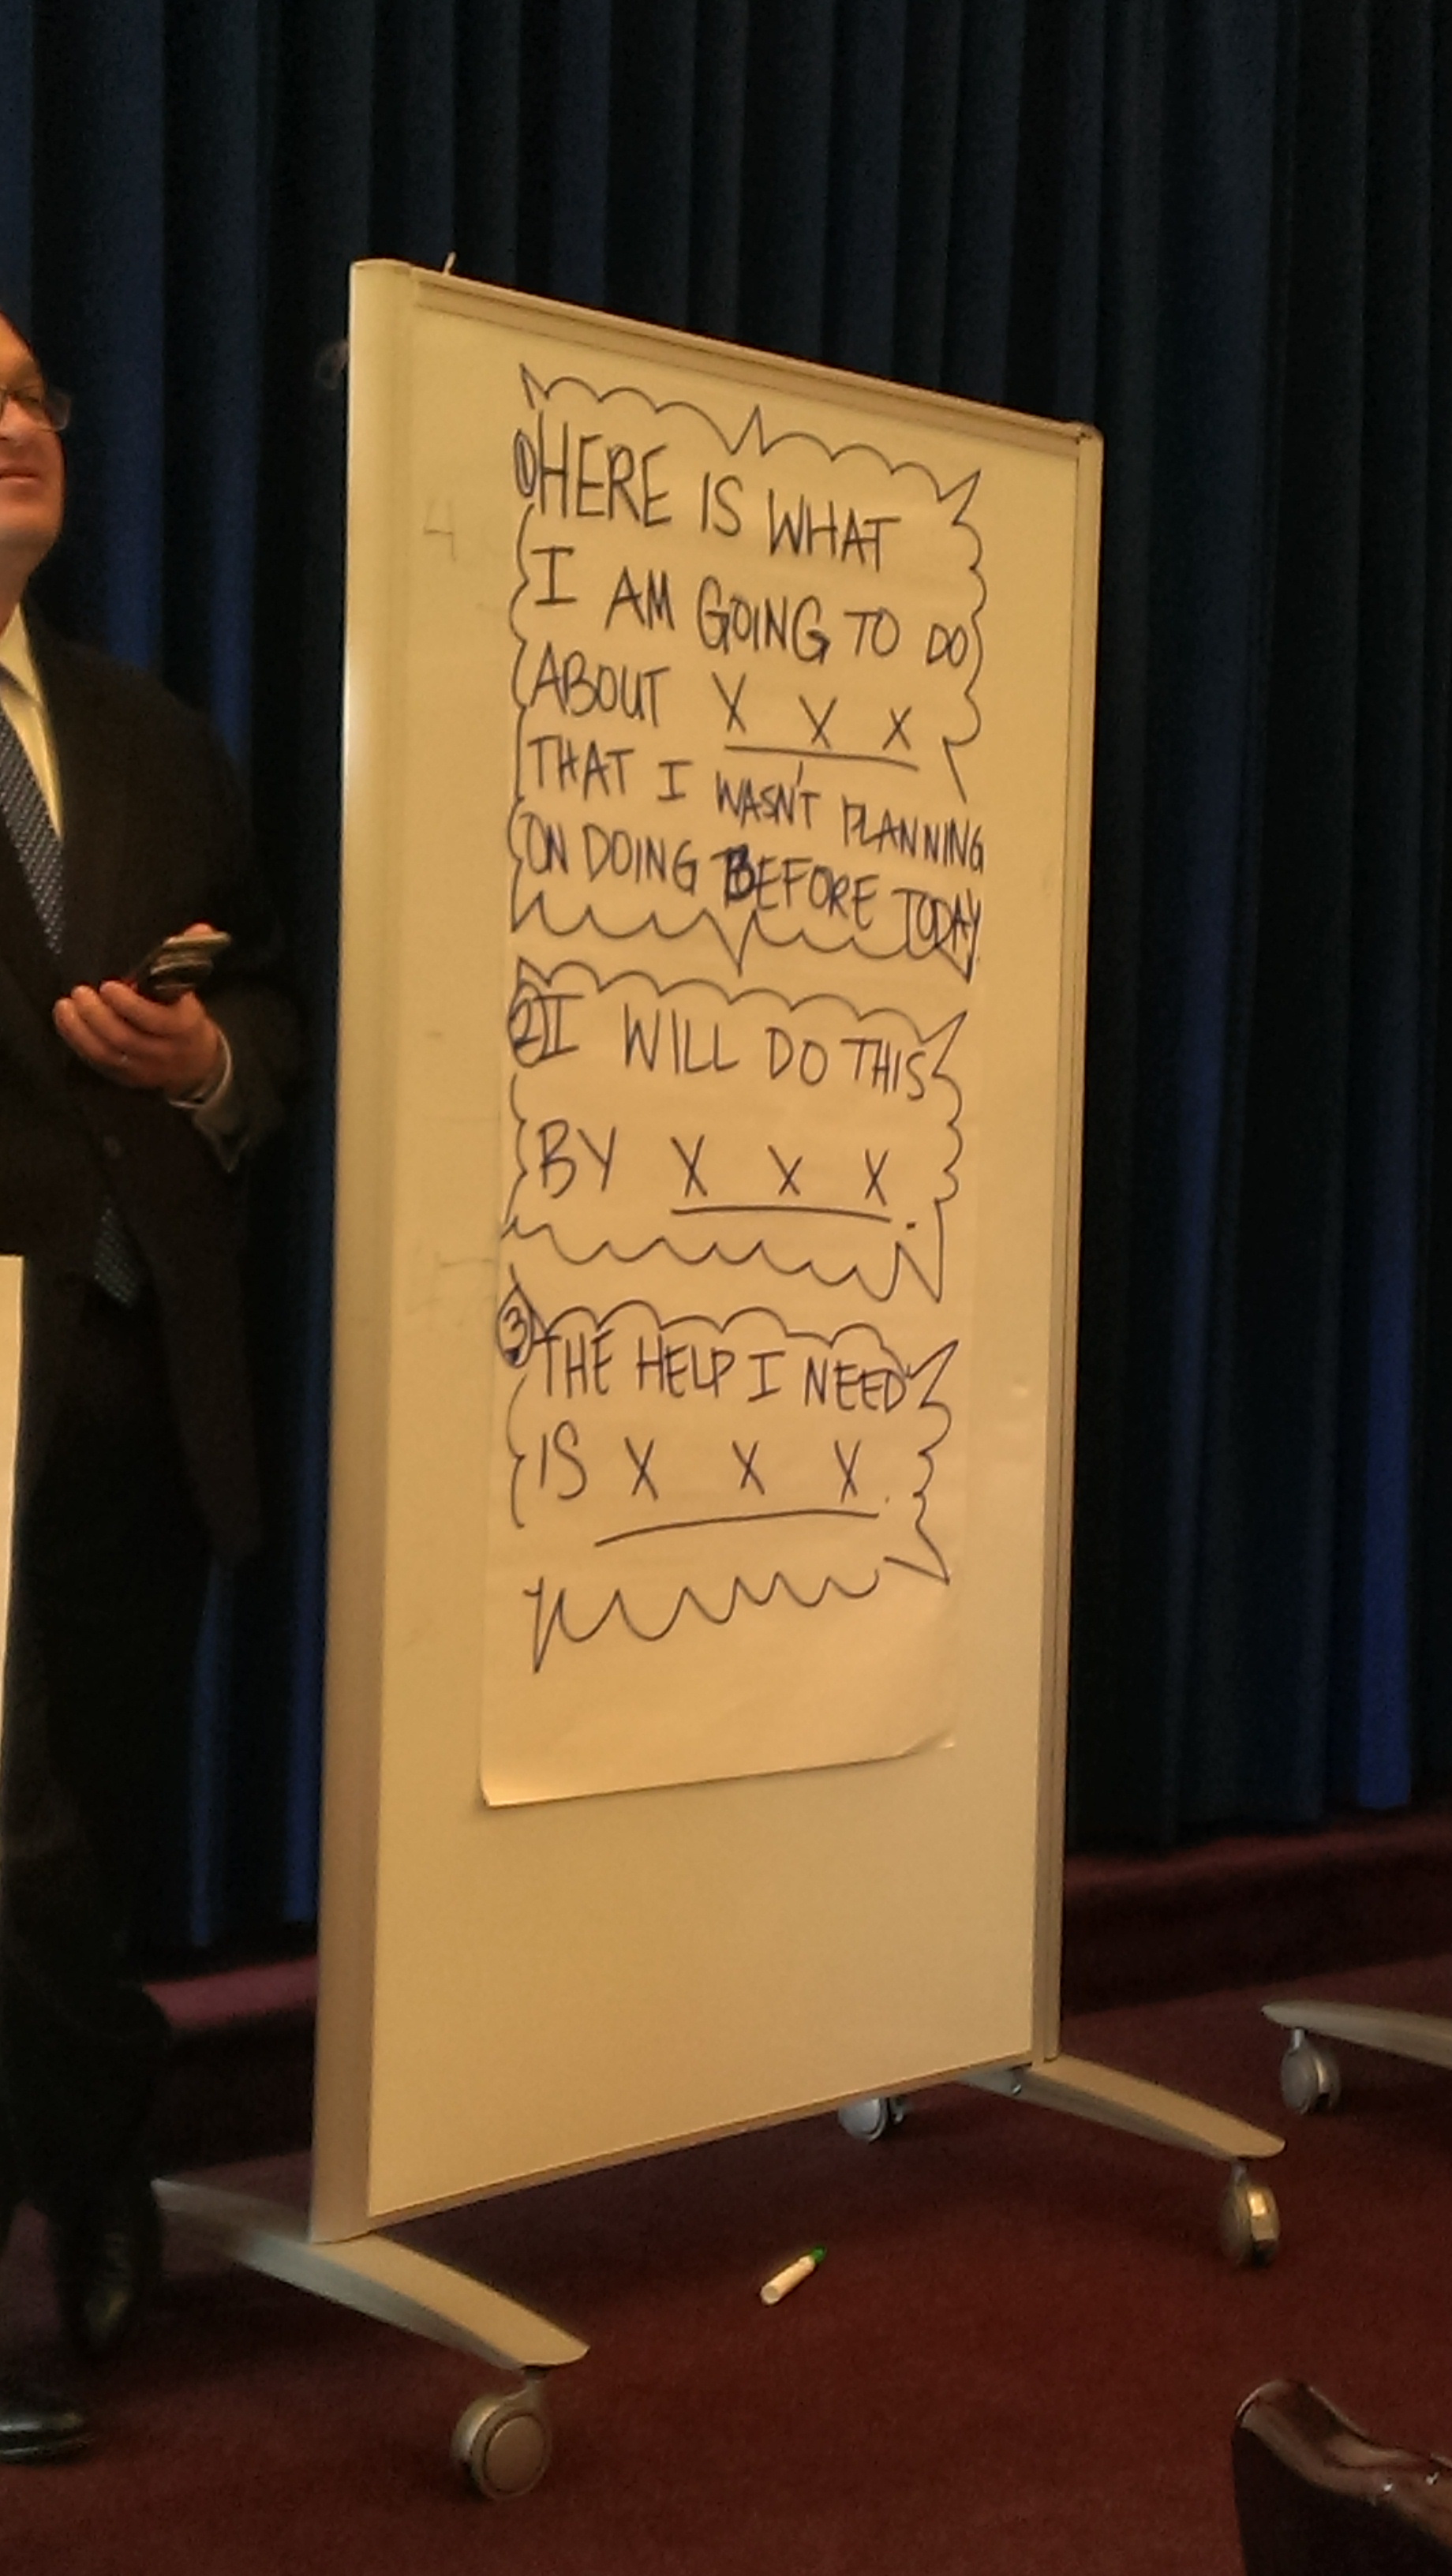 ① HERE IS WHAT
I AM GOING TO DO
ABOUT X X X
THAT I WASN'T PLANNING
ON DOING BEFORE TODAY
② I WILL DO THIS
BY X X X.
③ THE HELP I NEED
IS X X X.